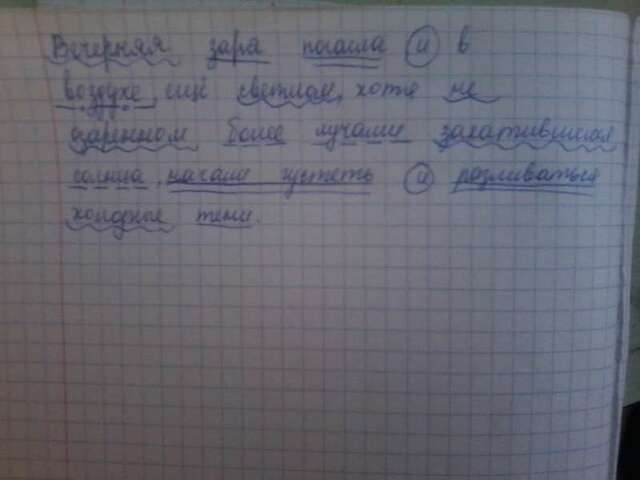 Вечерняя зара погасла и в
воздухе, ещё светлом, хотя не
озаренном более лучами закатившегося
солнца, начали густеть и разливаться
холодные тени.